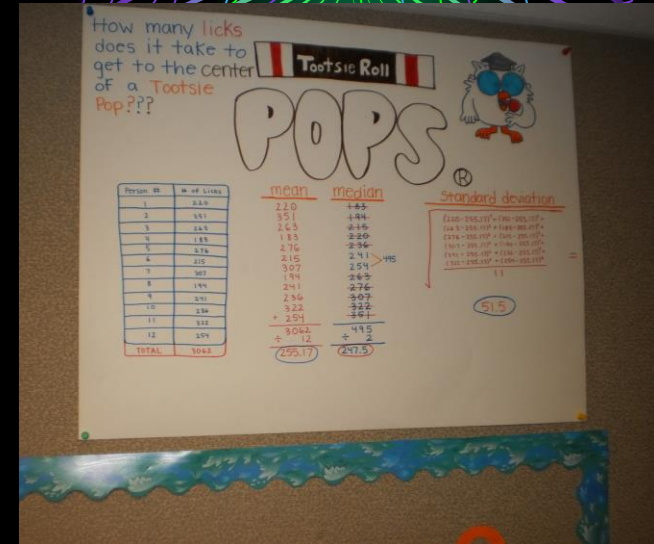 How many licks
does it take to
get to the center
of a Tootsie
Pop???
Tootsie Roll
POPS®
Person # # of Licks
1 220
2 351
3 263
4 183
5 276
6 215
7 307
8 194
9 241
10 236
11 322
12 254
TOTAL 3062
mean
220
351
263
183
276
215
307
194
241
236
322
+ 254
3062
÷ 12
255.17
median
183
194
215
220
236
241
254
495
263
276
307
322
351
495
÷ 2
247.5
Standard deviation
11
=
51.5